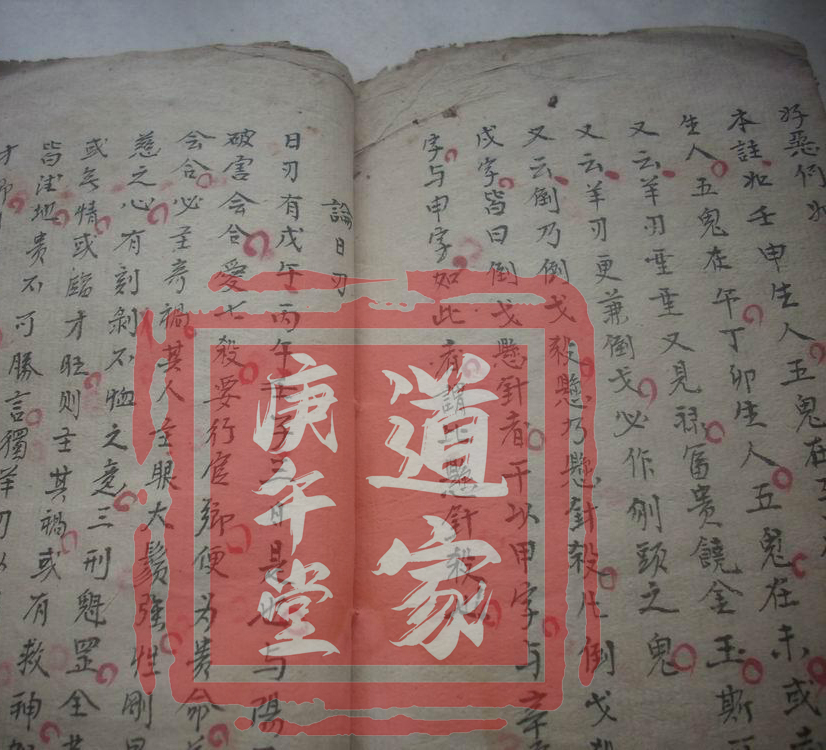 好惡何如
本註如壬申生人五鬼在
生人五鬼在午丁卯生人五鬼在未或
又云羊刃重重又見祿富貴饒金玉斯
又云羊刃更兼倒戈必作刎頭之鬼
又云倒乃倒戈殺懸乃懸針殺凡倒戈
戊字皆曰倒戈懸針者干以甲字与辛
字与申字如此者謂比懸針殺也
論日刃
日刃有戊午丙午壬子三日是也与陽
破害会合愛七殺要行官鄉便为貴命
会合必主奇禍其人主眼大鬚強性剛
慈之心有刻剝不恤之意三刑魁罡全
或无情或臨才旺則主其禍或有救神
皆 地貴不可勝言獨羊刃以
道家
庚午堂